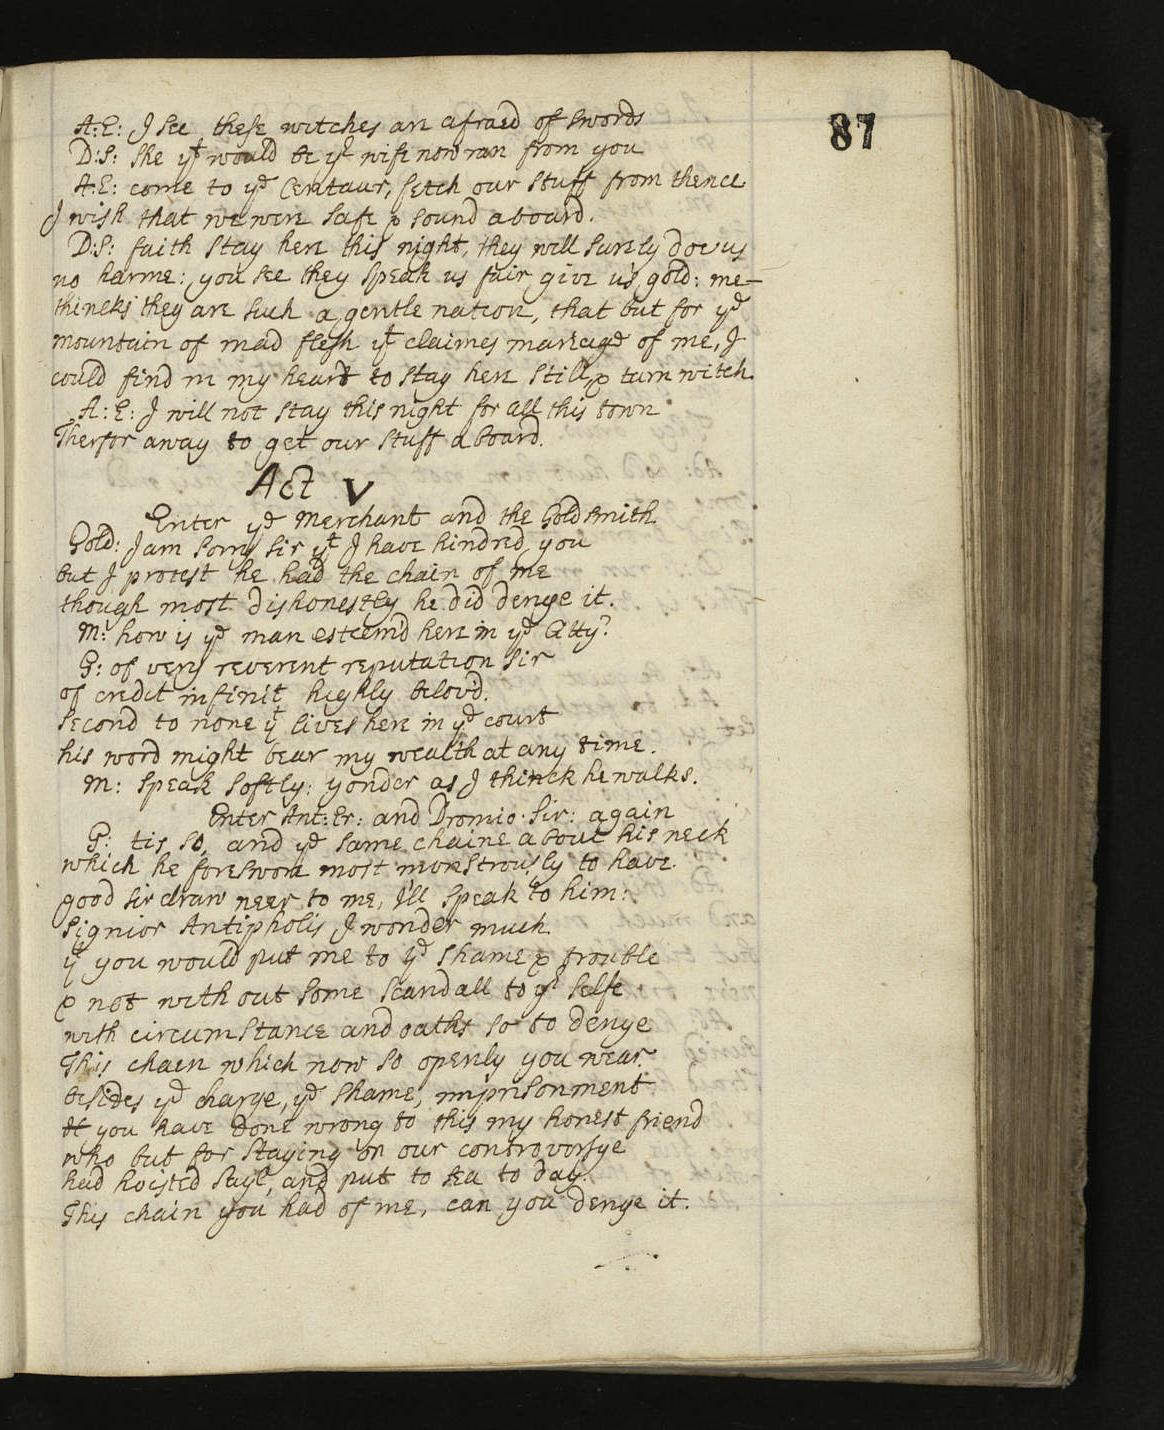 87
A:E: I see these witches are afraed of swords
D:S: she yt would be yr wife now ran from you
A:E: come to ye Centaur, fetch our stuff from thence
I wish that we were safe & sound aboard.
D:S: faith stay here this night, they will surely doe us
no harme: you see they speak us fair, give us gold: me-
thincks they are such a gentle nation, that but for ye
mountain of mad flesh yt claimes mariage of me, I
could find in my heart to stay here still & turn witch.
A:E: I will not stay this night for all this town
Therfor away to get our stuff aboard.
Act V
Enter ye Merchant and the Goldsmith
Gold: I am sorry sir yt I have hindred you
but I protest he had the chain of me
though most dishonestly he did denye it.
M: how is ye man esteem'd here in ye Citty?
G: of very reverent reputation sir
of credit infinit highly belov'd.
second to none yt lives here in ye court
his word might bear my wealth at any time.
M: speak softly: yonder as I thinck he walks.
Enter Ant: Er: and Dromio: Sir: again
G: tis so, and ye same chaine about his neck
which he foreswore most monstrously to have.
good sir draw neer to me, I'll speak to him:
Signior Antipholis I wonder much
yt you would put me to ye shame & trouble
& not with out some scandall to yr selfe
with circumstance and oaths so to denye
This chaen which now so openly you wear.
besides ye charge, ye shame, imprisonment
you have done wrong to this my honest friend
who but for staying on our controversye
had hoisted sayle, and put to sea to day.
This chain you had of me, can you denye it.